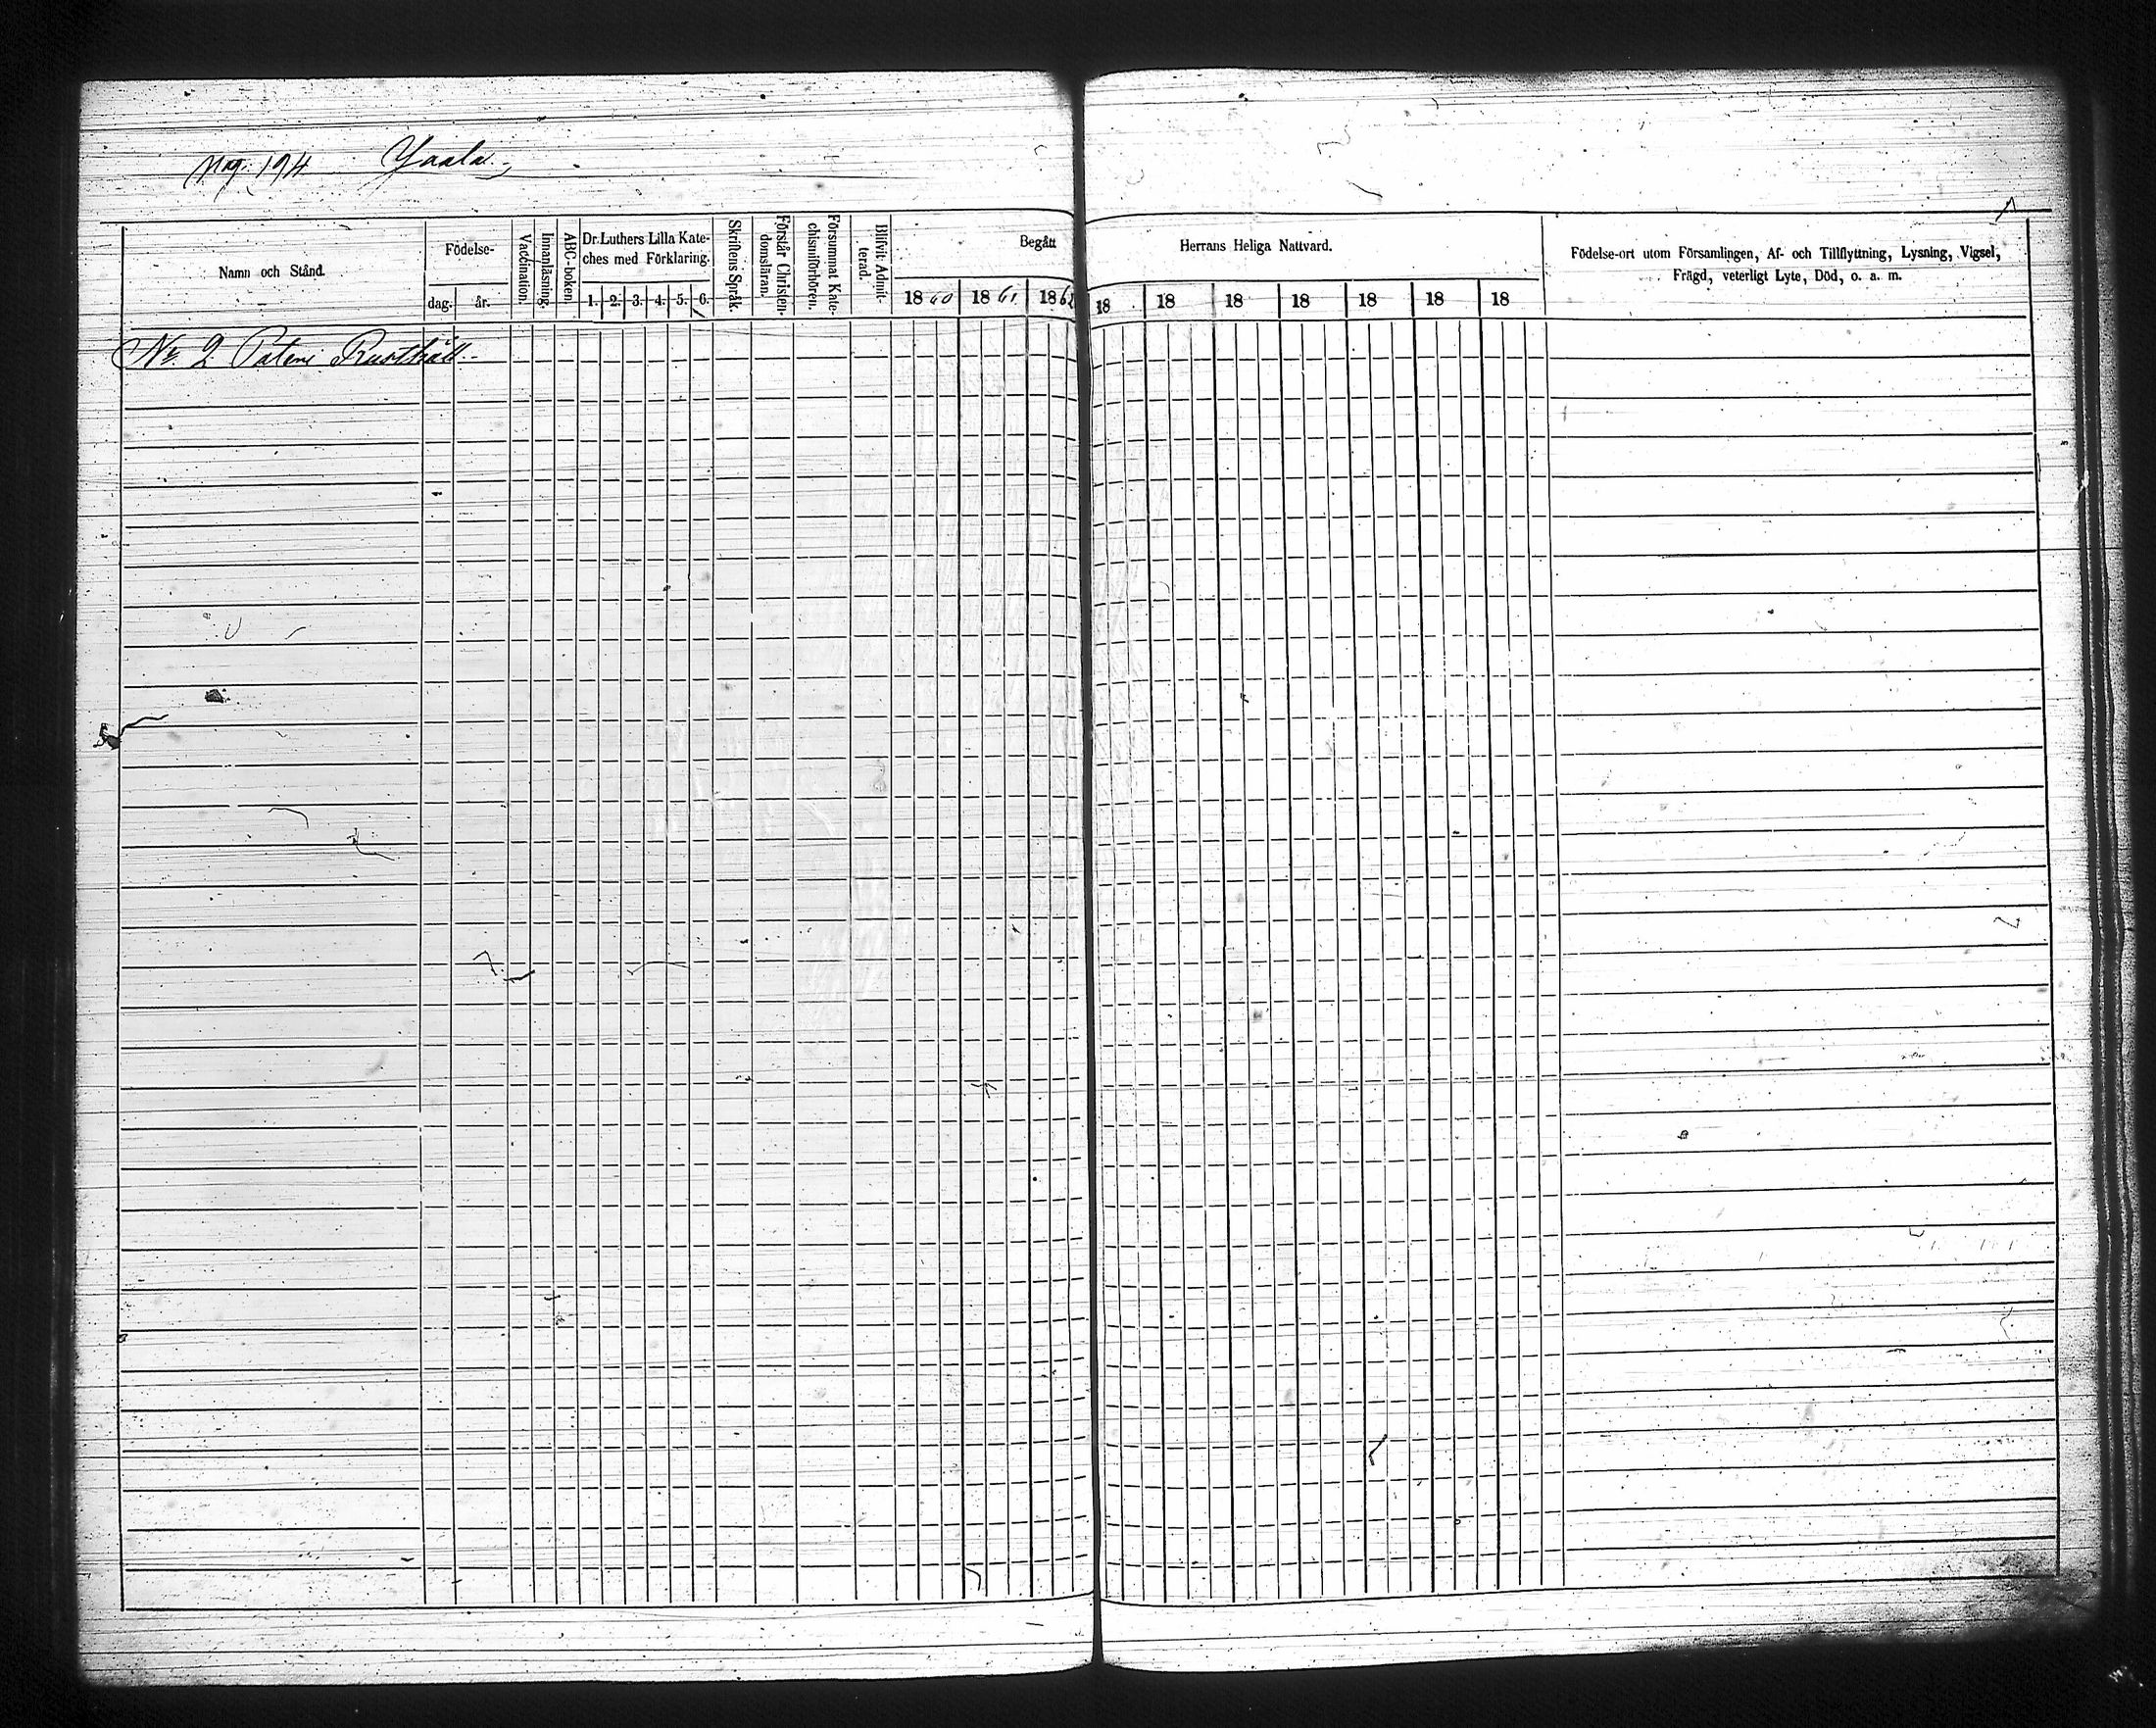 Pag. 194 Yaala
Namn och Stånd.
Födelse-
dag. år.
Vaccination.
Innanläsning.
ABC-boken.
Dr. Luthers Lilla Kate-
ches med Förklaring.
1. 2. 3. 4. 5. 6.
Skriftens Språk.
Förstår Christen-
domsläran.
Försummat Kate-
chismiförhören.
Blifvit Admit-
terad.
Begått Herrans Heliga Nattvard.
1860 1861 1862 18 18 18 18 18 18 18
Födelse-ort utom Församlingen, Af- och Tillflyttning, Lysning, Vigsel,
Frägd, veterligt Lyte, Död, o. a. m.
No 2 Pateni Rusthåll